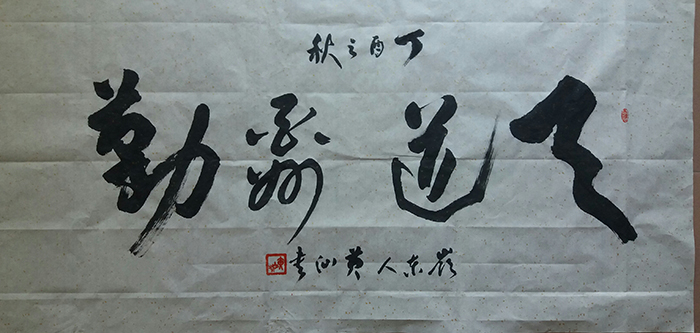 丁酉之秋
天道酬勤
嶺东人黄汕书